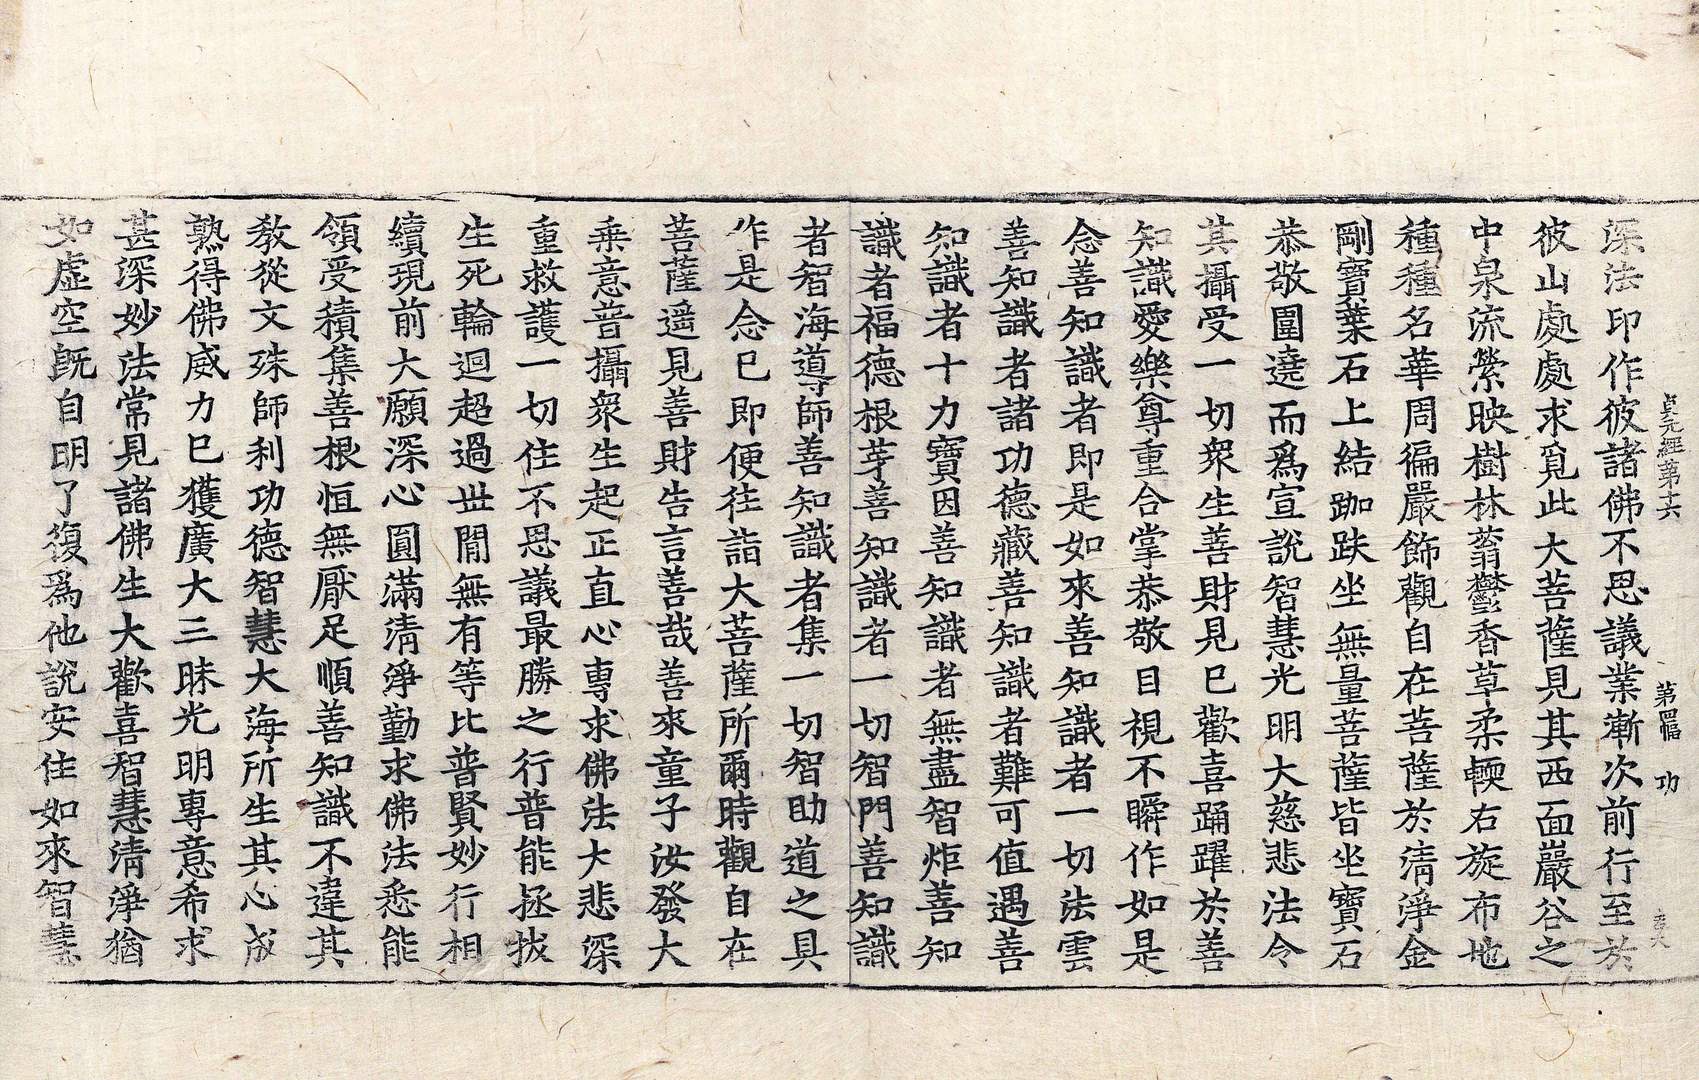 貞元經第十六　第四幅　功
深法印作彼諸佛不思議業漸次前行至於
彼山處處求覓此大菩薩見其西面巖谷之
中泉流縈映樹林蓊鬱香草柔輭右旋布地
種種名華周徧嚴飾觀自在菩薩於清淨金
剛寶葉石上結跏趺坐無量菩薩皆坐寶石
恭敬圍遶而爲宣說智慧光明大慈悲法令
其攝受一切衆生善財見已歡喜踊躍於善
知識愛樂尊重合掌恭敬目視不瞬作如是
念善知識者即是如來善知識者一切法雲
善知識者諸功德藏善知識者難可值遇善
知識者十力寶因善知識者無盡智炬善知
識者福德根芽善知識者一切智門善知識
者智海導師善知識者集一切智助道之具
作是念已即便往詣大菩薩所爾時觀自在
菩薩遥見善財告言善哉善來童子汝發大
乗意普攝衆生起正直心專求佛法大悲深
重救護一切住不思議最勝之行普能拯拔
生死輪迴超過世閒無有等比普賢妙行相
續現前大願深心圓滿清淨勤求佛法悉能
領受積集善根恒無厭足順善知識不違其
教從文殊師利功德智慧大海所生其心成
熟得佛威力已獲廣大三昧光明專意希求
甚深妙法常見諸佛生大歡喜智慧清淨猶
如虛空既自明了復爲他說安住如來智慧